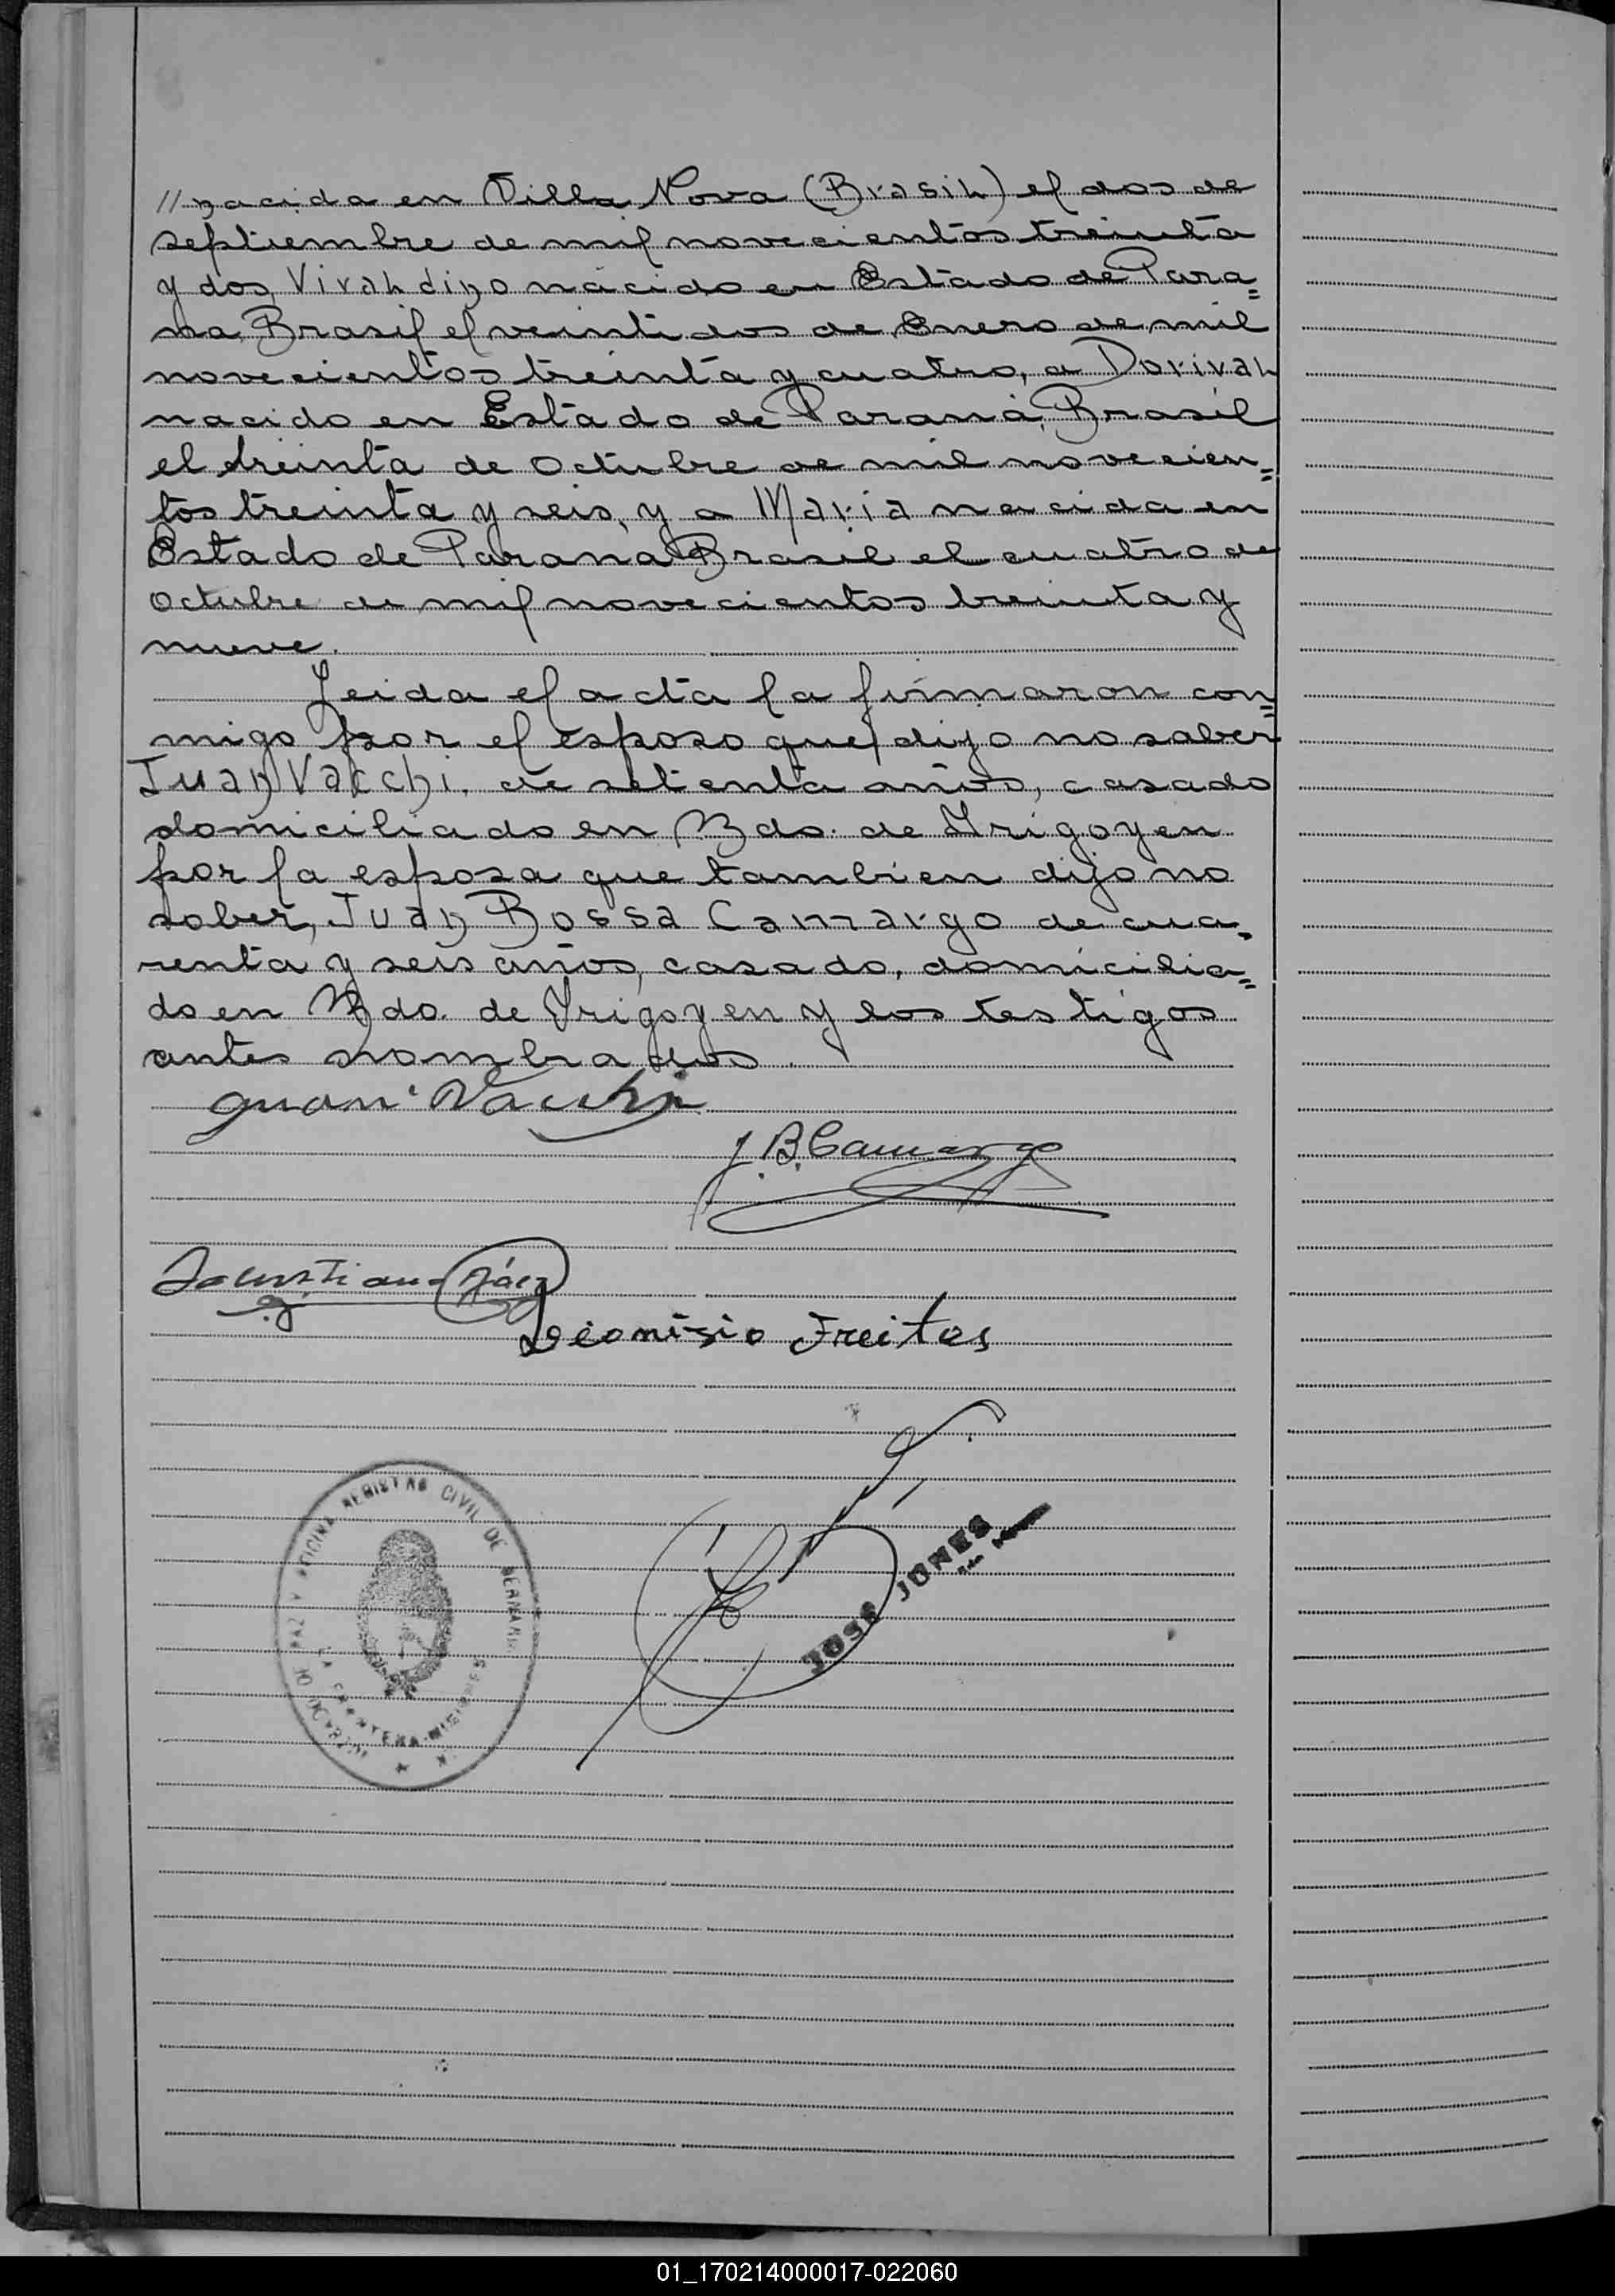 // nacida en Villa Nova (Brasil) el dos de
septiembre de mil novecientos treinta
y dos, Viraldino nacido en Estado de Para=
na Brasil el veintidos de Enero de mil
novecientos treinta y cuatro, a Dorival
nacido en Estado de Paraná Brasil
el treinta de Octubre de mil novecien=
tos treinta y seis, y a Maria nacida en
Estado de Paraná Brasil el cuatro de
Octubre de mil novecientos treinta y
nueve.
Leida el acta la firmaron con=
migo por el esposo que dijo no saber
Juan Vacchi, de setenta años, casado
domiciliado en Bdo. de Yrigoyen
por la esposa que tambien dijo no
saber, Juan Bossa Camargo de cua=
renta y seis años, casado, domicilia=
do en Bdo. de Yrigoyen y los testigos
antes nombrados.
Juan Vacchi
J. B. Camargo
Páez
Dionisio Freitas
REGISTRO CIVIL DE BERNARDO
LA FRONTERA-MISIONES
JOSÉ JONES
01_170214000017-022060